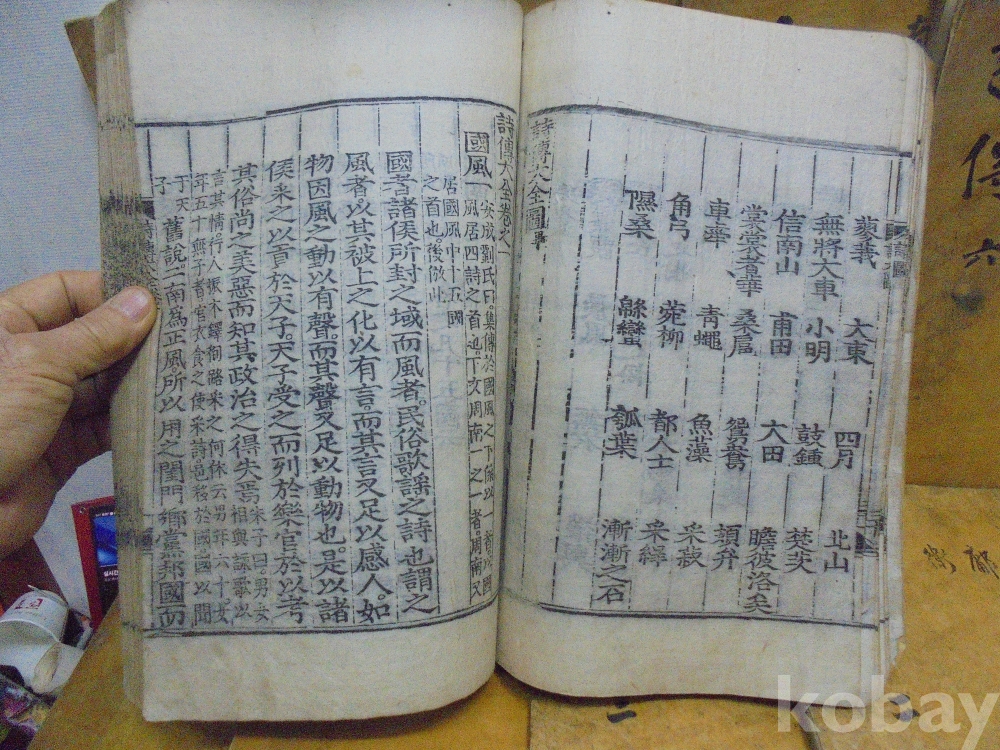 蓼莪 大東 四月 北山
無將大車 小明 鼓鍾 楚茨
信南山 甫田 大田 瞻彼洛矣
裳裳者華 桑扈 鴛鴦 頍弁
車舝 青蠅 魚藻 采菽
角弓 菀柳 都人士 采綠
隰桑 緜蠻 瓠葉 漸漸之石
詩傳大全圖畢
詩傳大全卷之一
國風一
安成劉氏曰。集傳於國風之下係以一者以國
風居四詩之首也。下文周南一之一者。周南又
居國風中十五國
之首也。後倣此
國者諸侯所封之域。而風者。民俗歌謠之詩也。謂之
風者。以其被上之化以有言。而其言又足以感人。如
物因風之動以有聲。而其聲又足以動物也。是以諸
侯采之以貢於天子。天子受之而列於樂官。於以考
其俗尚之美惡。而知其政治之得失焉。
朱子曰。男女
相與詠歌以
言其情。行人振木鐸徇路采之。何休云男年六十女
年五十無子者。官衣食之。使采詩。邑移於國。國以聞
于天
子
舊說。二南爲正風。所以用之閨門鄉黨邦國而
kobay